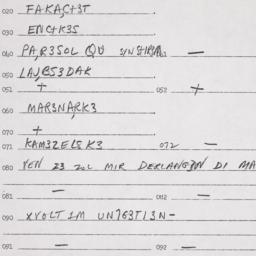 020 FAKA,C+3T
030 ENC+K3S
040 PA,R3SOL QU —
050 LA,B53DAK
051 + 052 +
060 MAR3NARK3
070 +
071 KAM3ZELS K3 072 —
080 VEN 23 ZOL MIR DERLANG3N DI MA
081 — 082 —
090 XVOLT 1M UN7G3T13N-
091 — 092 —